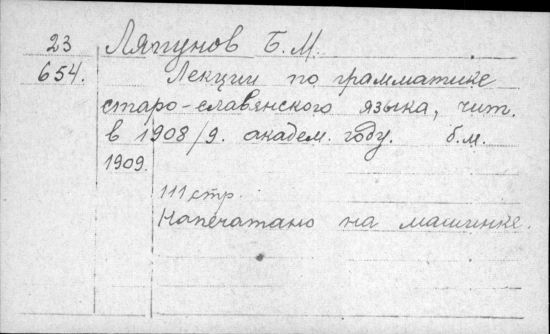 23 Ляпунов Б.М.
654. Лекции по грамматике
старо-славянского языка, чит.
в 1908/9. академ. году. б.м.
1909.
111 стр.
Напечатано на машинке.